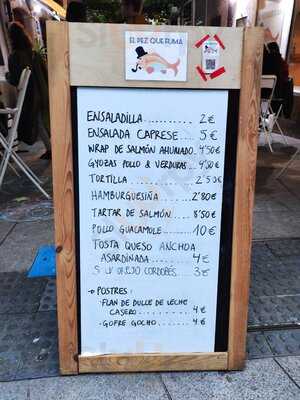 EL PEZ QUE FUMA
EL PEZ QUE FUMA
ENSALADILLA .......... 2€
ENSALADA CAPRESE .... 5€
WRAP DE SALMÓN AHUMADO. 4'50€
GYOZAS POLLO & VERDURAS. 4'50€
TORTILLA ............. 2'50€
HAMBURGUESIÑA ...... 2'80€
TARTAR DE SALMÓN ..... 8'50€
POLLO GUACAMOLE ..... 10€
TOSTA QUESO ANCHOA
ASARDINADA ...... 4€
CORDOBÉS.... 3€
→ POSTRES:
· FLAN DE DULCE DE LECHE
CASERO .......... 4€
· GOFRE GOCHO ....... 4€